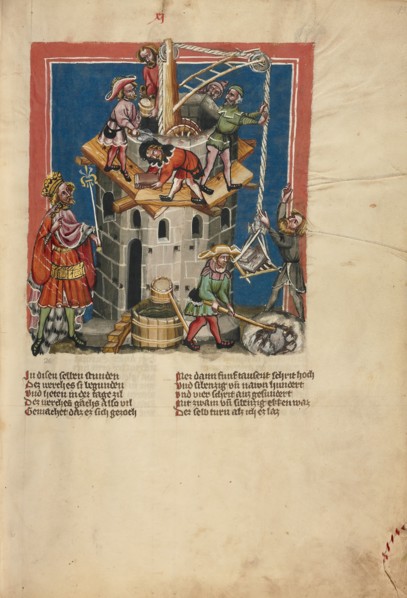 xj
In disen selben stunden
Dez werches si begunden
Vnd heten in der tage zil
Des werches gachs also vil
Gemachet daz er sich
Mer dann funf tausent schrit hoch
Vnd sibenzig vn nawn hundert
Vnd vier schrit auz gesundert
Mit zwain vn sibenzig ekken waz
Der selb turn als ich ez laz